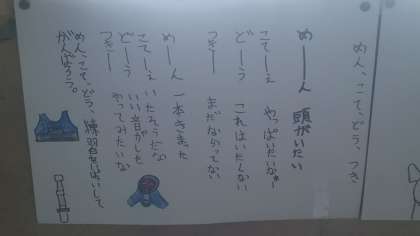 めん、こて、どう、つき
めーん　頭がいたい
こてーぇ　やっぱいたいなぁー
どーう　これはいたくない
つきー　まだならってない
めーん　一本きまった
こてーぇ　いたそうだな
どーう　いい音がした
つきー　やってみたいな
めん、こて、どう、練習をいっぱいして
がんばろう。